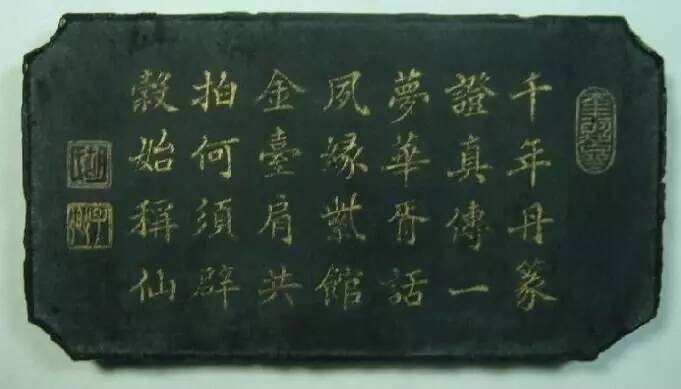 千年丹篆
證真傳一
夢華胥話
夙緣紫館
金臺肩共
拍何須辟
穀始稱仙